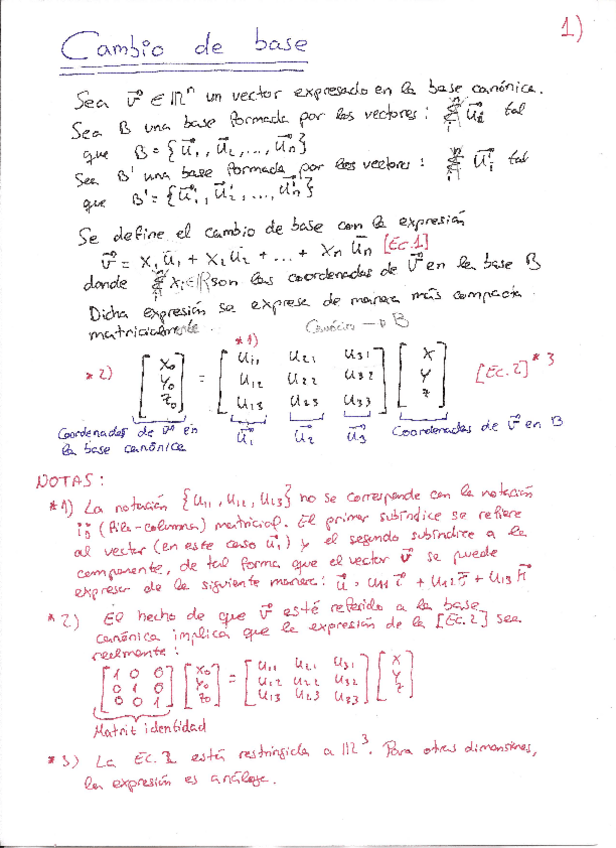 1)
Cambio de base
Sea v⃗ ∈ ℝⁿ un vector expresado en la base canónica.
Sea B una base formada por los vectores: u⃗i tal
que B = {u⃗1, u⃗2, ..., u⃗n}
Sea B' una base formada por los vectores: u⃗'i tal
que B' = {u⃗'1, u⃗'2, ..., u⃗'n}
Se define el cambio de base con la expresión
v⃗ = x1 u⃗1 + x2 u⃗2 + ... + xn u⃗n [Ec.1]
donde xi∈ℝ son las coordenadas de v⃗ en la base B
Dicha expresión se expresa de manera más compacta
matricialmente. Canónica → B
*1)
*2) [x0 y0 z0] = [u11 u21 u31; u12 u22 u32; u13 u23 u33] [x y z] [Ec.2] *3
Coordenadas de v⃗ en la base canónica u⃗1 u⃗2 u⃗3 Coordenadas de v⃗ en B
NOTAS:
*1) La notación {u11, u12, u13} no se corresponde con la notación
ij (fila-columna) matricial. El primer subíndice se refiere
al vector (en este caso u⃗1) y el segundo subíndice a la
componente, de tal forma que el vector v⃗ se puede
expresar de la siguiente manera: u⃗ = u11 i⃗ + u12 j⃗ + u13 k⃗
*2) El hecho de que v⃗ esté referido a la base
canónica implica que la expresión de la [Ec.2] sea
realmente:
[1 0 0; 0 1 0; 0 0 1] [x0 y0 z0] = [u11 u21 u31; u12 u22 u32; u13 u23 u33] [x y z]
Matriz identidad
*3) La Ec. 2 está restringida a ℝ³. Para otras dimensiones,
la expresión es análoga.